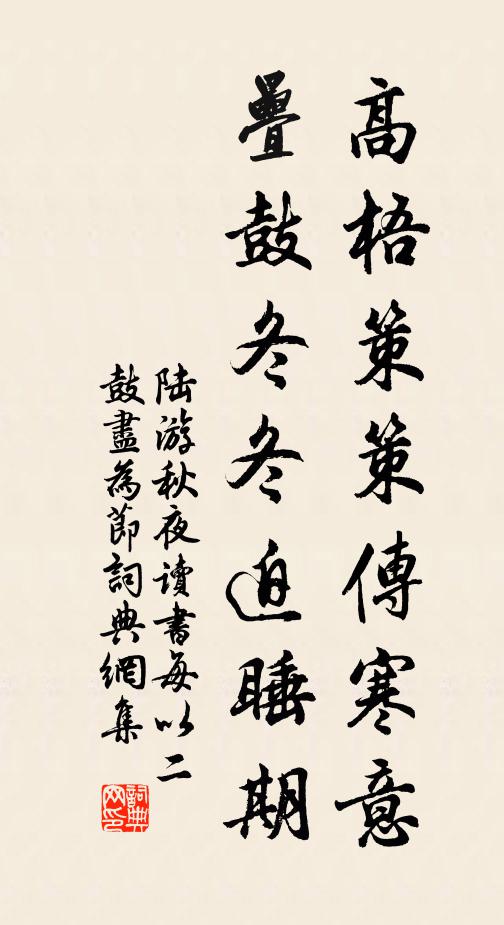 高梧策策傳寒意
疊鼓冬冬迫睡期
陆游秋夜读書每以二
鼓盡為節詞典網集
詞典网印